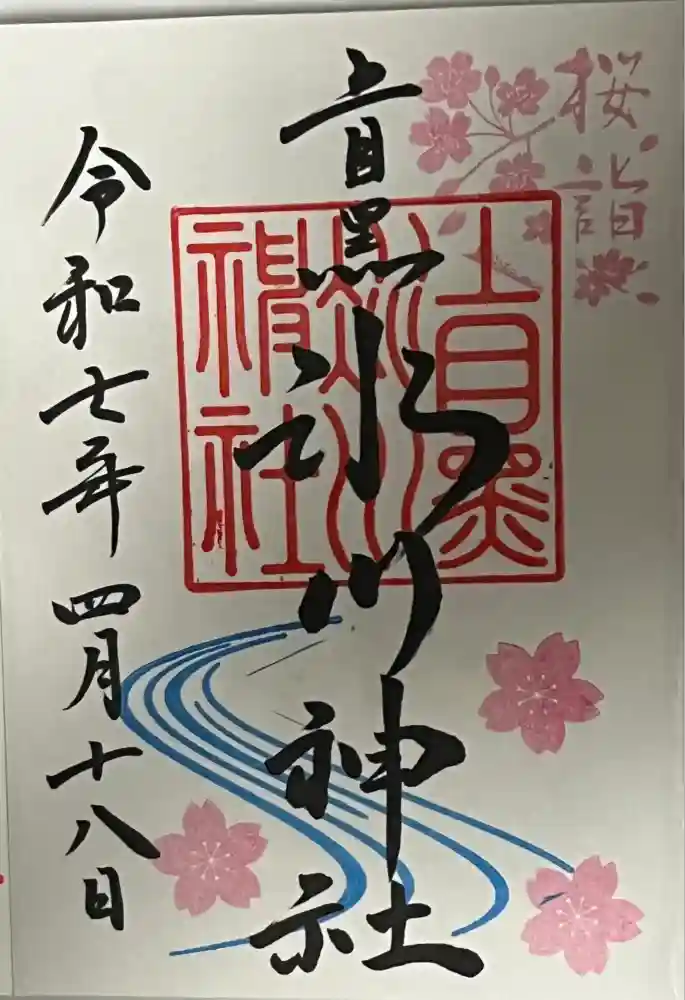 桜詣
上目黒氷川神社
上目黒氷川神社
令和七年四月十八日